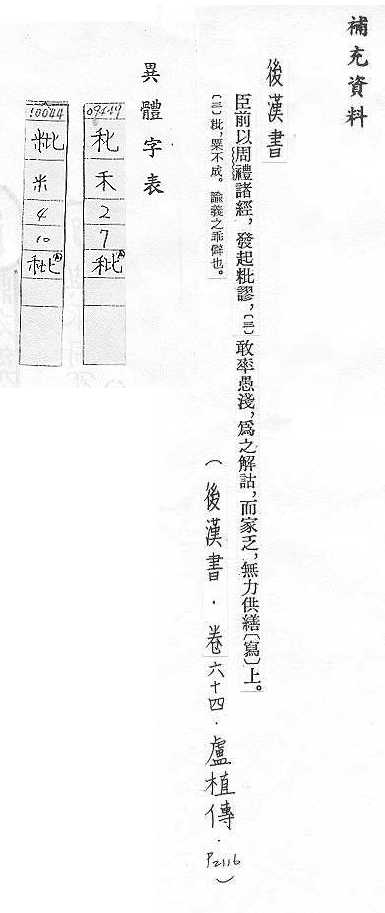 補充資料
後漢書
臣前以周禮諸經，發起粃謬，〔三〕敢率愚淺，為之解詁，而家乏，無力供繕〔寫〕上。
〔三〕粃，粟不成。諭義之乖僻也。
（後漢書．卷六十四．盧植傳．P2116）
異體字表
秕
禾
2
7
粃
10044
粃
米
4
10
粃